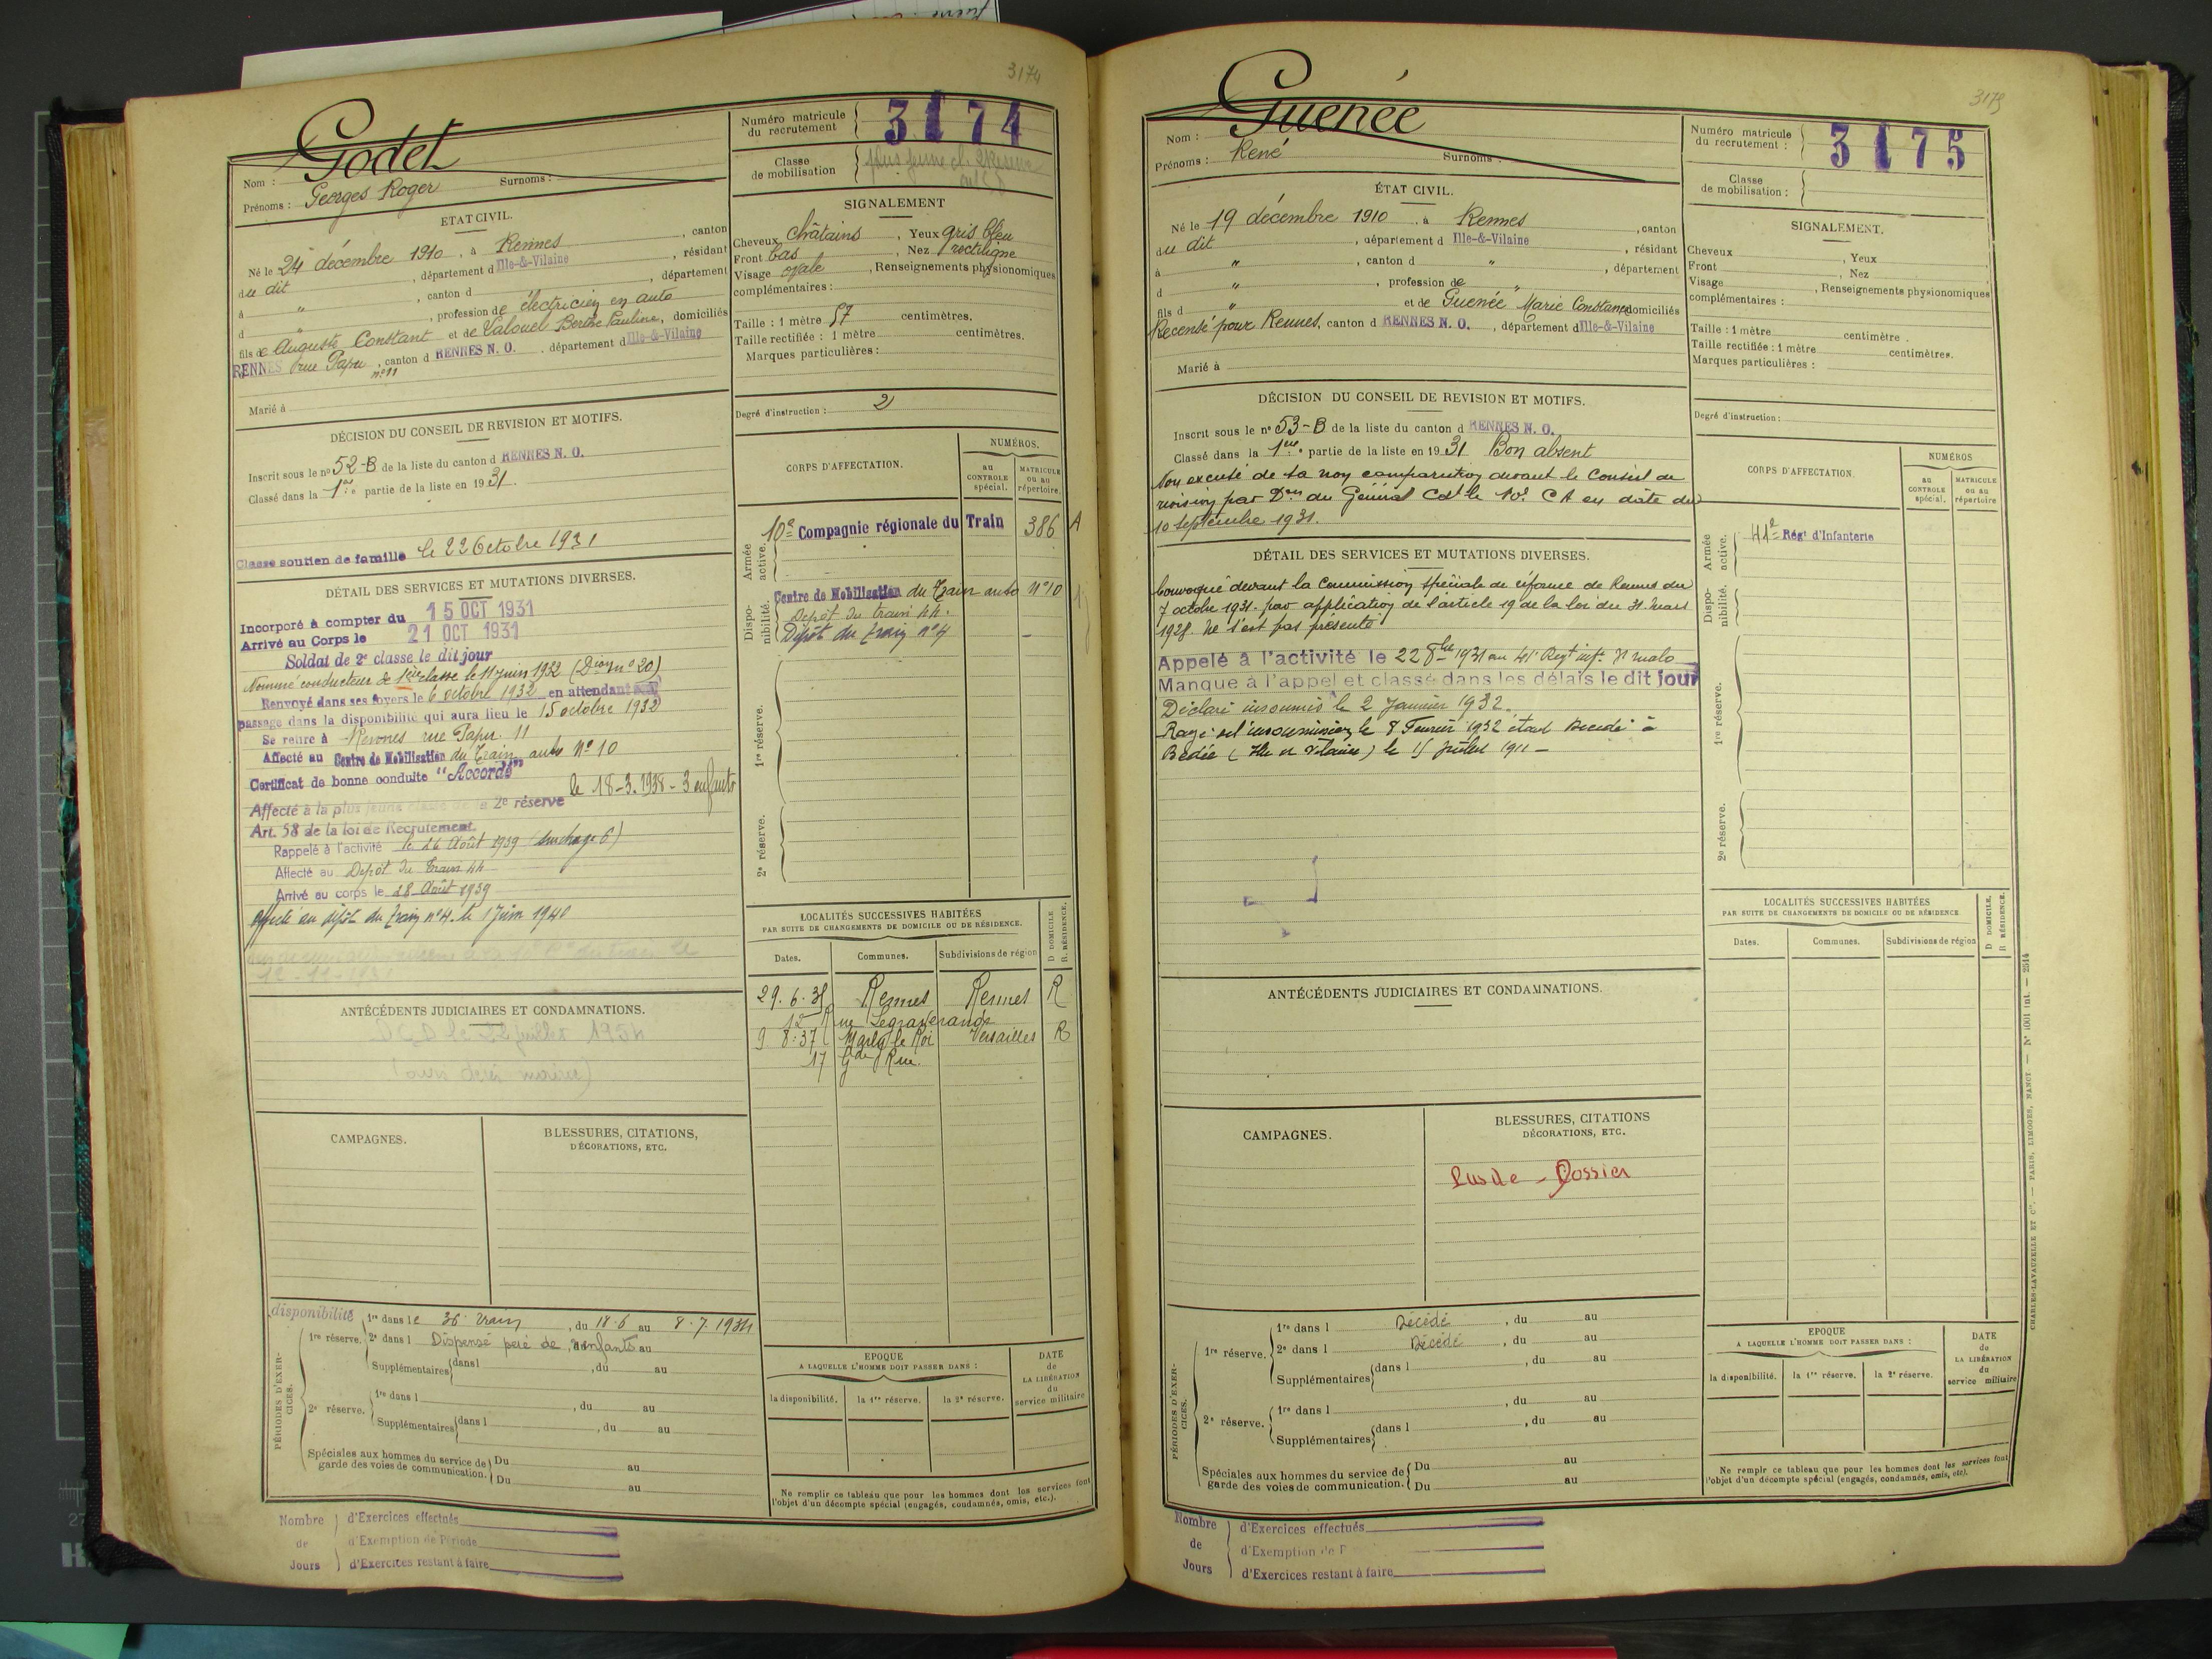 3174
Godet
Nom :
Prénoms : Georges Roger Surnoms :
ETAT CIVIL.
Né le 24 décembre 1910, à Rennes, canton
du dit, département d Ille-&-Vilaine, résidant
à " , canton d , département
d " , profession de électricien en auto
fils de Auguste Constant et de Valouel Berthe Pauline, domiciliés
RENNES rue Papu, canton d RENNES N. O., département d Ille-&-Vilaine
n° 11
Marié à
DÉCISION DU CONSEIL DE REVISION ET MOTIFS.
Inscrit sous le n° 52-B de la liste du canton d RENNES N. O.
Classé dans la 1re partie de la liste en 1931.
Classé soutien de famille le 22 Octobre 1931
DÉTAIL DES SERVICES ET MUTATIONS DIVERSES.
Incorporé à compter du 15 OCT 1931
Arrivé au Corps le 21 OCT 1931
Soldat de 2e classe le dit jour
Nommé conducteur de 1ère classe le 11 juin 1932 (Dion n° 20)
Renvoyé dans ses foyers le 6 octobre 1932 en attendant son
passage dans la disponibilité qui aura lieu le 15 octobre 1932
Se retire à Rennes rue Papu. 11
Affecté au Centre de Mobilisation du Train auto N° 10
Certificat de bonne conduite "Accordé"
le 18-3.1938 - 3 enfants
Affecté à la plus jeune classe de la 2e réserve
Art. 58 de la loi de Recrutement.
Rappelé à l'activité le 26 Août 1939
Affecté au Depôt du Train 44
Arrivé au corps le 28 Août 1939
Affecté au dépôt du train n° 4. le 1 Juin 1940
ANTÉCÉDENTS JUDICIAIRES ET CONDAMNATIONS.
DCD le 22 juillet 1954
(avis décès mairie)
CAMPAGNES.
BLESSURES, CITATIONS,
DÉCORATIONS, ETC.
disponibilité
PÉRIODES D'EXERCICES.
1re dans le 36e Train, du 18-6 au 8-7.1934
1re réserve. 2e dans l Dispensé père de enfants au
Supplémentaires dans l , du au
2e réserve. 1re dans l , du au
Supplémentaires dans l , du au
Spéciales aux hommes du service de Du au
garde des voies de communication. Du au
Nombre de Jours
d'Exercices effectués
d'Exemption de Période
d'Exercices restant à faire
Numéro matricule
du recrutement
3174
Classe
de mobilisation
plus jeune cl. 2 Réserve
SIGNALEMENT
Cheveux châtains, Yeux gris bleu
Front bas, Nez rectiligne
Visage ovale, Renseignements physionomiques
complémentaires :
Taille : 1 mètre 57 centimètres.
Taille rectifiée : 1 mètre centimètres.
Marques particulières :
Degré d'instruction : 2
CORPS D'AFFECTATION.
NUMÉROS.
au CONTROLE spécial.
MATRICULE ou au répertoire.
Armée active.
10e Compagnie régionale du Train 386 A
Disponibilité.
Centre de Mobilisation du Train auto N° 10
Dépôt du train 44.
Dépôt du train n° 4 -
1re réserve.
2e réserve.
LOCALITÉS SUCCESSIVES HABITÉES
PAR SUITE DE CHANGEMENTS DE DOMICILE OU DE RÉSIDENCE.
D DOMICILE
R. RÉSIDENCE.
Dates. Communes. Subdivisions de région
29.6.35 Rennes Rennes R
12 Rue Legraverand
9 8.37 Marly le Roi Versailles R
17 Gde Rue
EPOQUE
A LAQUELLE L'HOMME DOIT PASSER DANS :
la disponibilité. la 1re réserve. la 2e réserve.
DATE
de
LA LIBÉRATION
du
service militaire
Ne remplir ce tableau que pour les hommes dont les services font
l'objet d'un décompte spécial (engagés, condamnés, omis, etc.).
3175
Guenée
Nom :
Prénoms : René Surnoms :
ÉTAT CIVIL.
Né le 19 décembre 1910, à Rennes, canton
du dit, département d Ille-&-Vilaine, résidant
à " , canton d " , département
d " , profession de "
fils d " et de Guenée Marie Constance domiciliés
Recensé pour Rennes, canton d RENNES N. O., département d Ille-&-Vilaine
Marié à
DÉCISION DU CONSEIL DE REVISION ET MOTIFS.
Inscrit sous le n° 53-B de la liste du canton d RENNES N. O.
Classé dans la 1re partie de la liste en 1931 Bon absent
Non excusé de sa non comparution devant le Conseil de
révision par Don du Général Cdt le 10e CA en date du
10 septembre 1931.
DÉTAIL DES SERVICES ET MUTATIONS DIVERSES.
Convoqué devant la Commission spéciale de réforme de Rennes du
7 octobre 1931. par application de l'article 19 de la loi du 31 mars
1928. Ne s'est pas présenté
Appelé à l'activité le 22 8bre 1931 au 41e Regt inf. St malo
Manque à l'appel et classé dans les délais le dit jour
Déclaré insoumis le 2 Janvier 1932.
Rayé de l'insoumission le 8 Février 1932 étant décédé à
Bédée (Ille et Vilaine) le 15 juillet 1911 -
ANTÉCÉDENTS JUDICIAIRES ET CONDAMNATIONS.
CAMPAGNES.
BLESSURES, CITATIONS
DÉCORATIONS, ETC.
Pas de - Dossier
PÉRIODES D'EXERCICES.
1re réserve. 1re dans l Décédé, du au
2e dans l Décédé, du au
Supplémentaires dans l , du au
2e réserve. 1re dans l , du au
Supplémentaires dans l , du au
Spéciales aux hommes du service de Du au
garde des voies de communication. Du au
Nombre de Jours
d'Exercices effectués
d'Exemption de P
d'Exercices restant à faire
Numéro matricule
du recrutement :
3175
Classe
de mobilisation :
SIGNALEMENT.
Cheveux , Yeux
Front , Nez
Visage , Renseignements physionomiques
complémentaires :
Taille : 1 mètre centimètre.
Taille rectifiée : 1 mètre centimètres.
Marques particulières :
Degré d'instruction :
CORPS D'AFFECTATION.
NUMÉROS
au CONTROLE spécial.
MATRICULE ou au répertoire
Armée active.
41e Régt d'Infanterie
Disponibilité.
1re réserve.
2e réserve.
LOCALITÉS SUCCESSIVES HABITÉES
PAR SUITE DE CHANGEMENTS DE DOMICILE OU DE RÉSIDENCE
D DOMICILE.
R RÉSIDENCE.
Dates. Communes. Subdivisions de région
EPOQUE
A LAQUELLE L'HOMME DOIT PASSER DANS :
la disponibilité. la 1re réserve. la 2e réserve.
DATE
de
LA LIBÉRATION
du
service militaire
Ne remplir ce tableau que pour les hommes dont les services font
l'objet d'un décompte spécial (engagés, condamnés, omis, etc).
CHARLES-LAVAUZELLE ET Cie. — PARIS, LIMOGES, NANCY — N° 1001 Int. — 2514